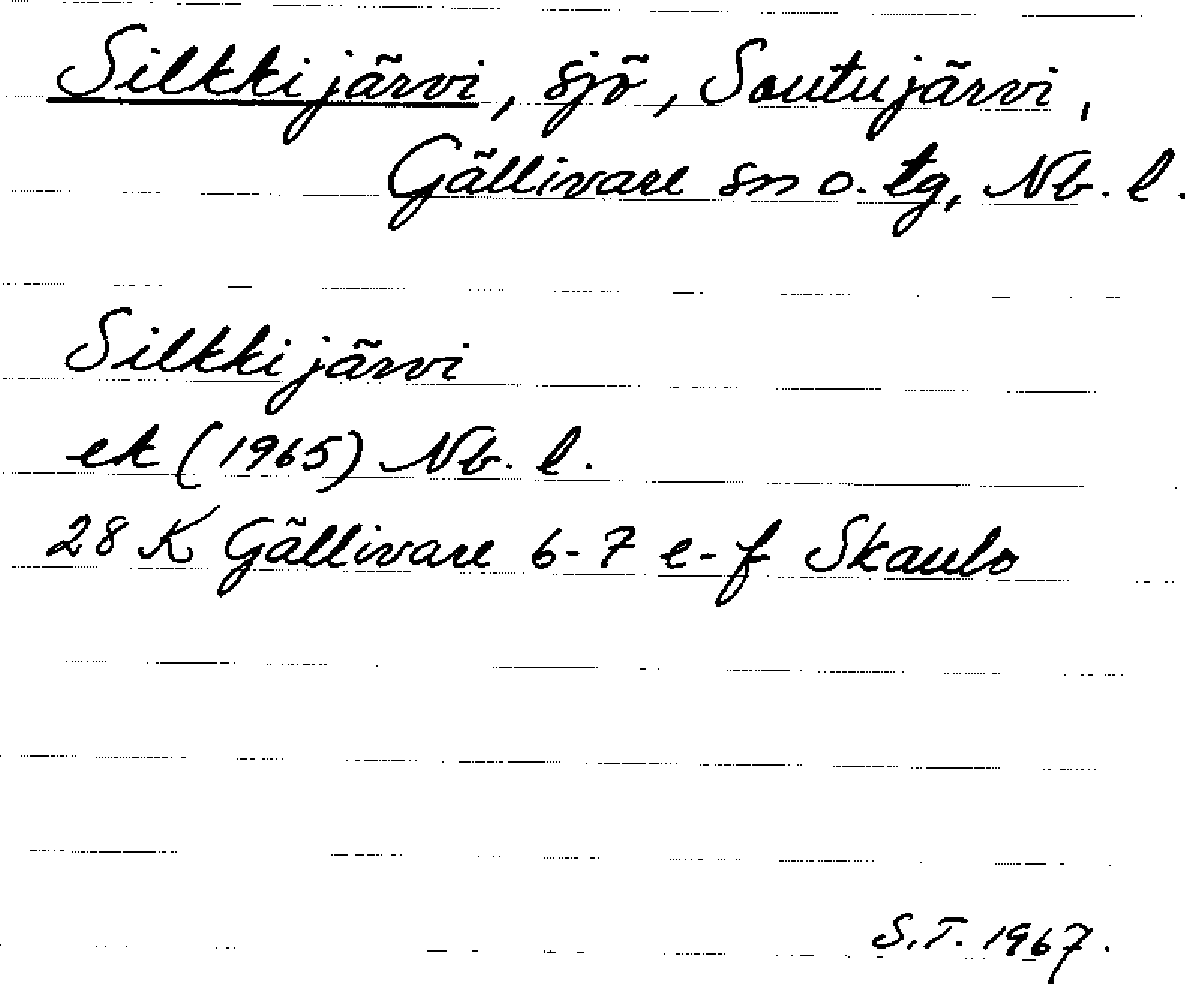 Silkkijärvi, sjö, Soutujärvi,
Gällivare sn o. tg, Nb. l.
Silkkijärvi
ek (1965) Nb. l.
28 K Gällivare 6-7 e-f Skaulo
S.T. 1967.